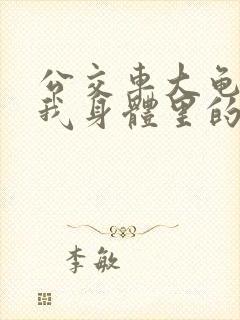 公交車大龟
我身體里的
李敏